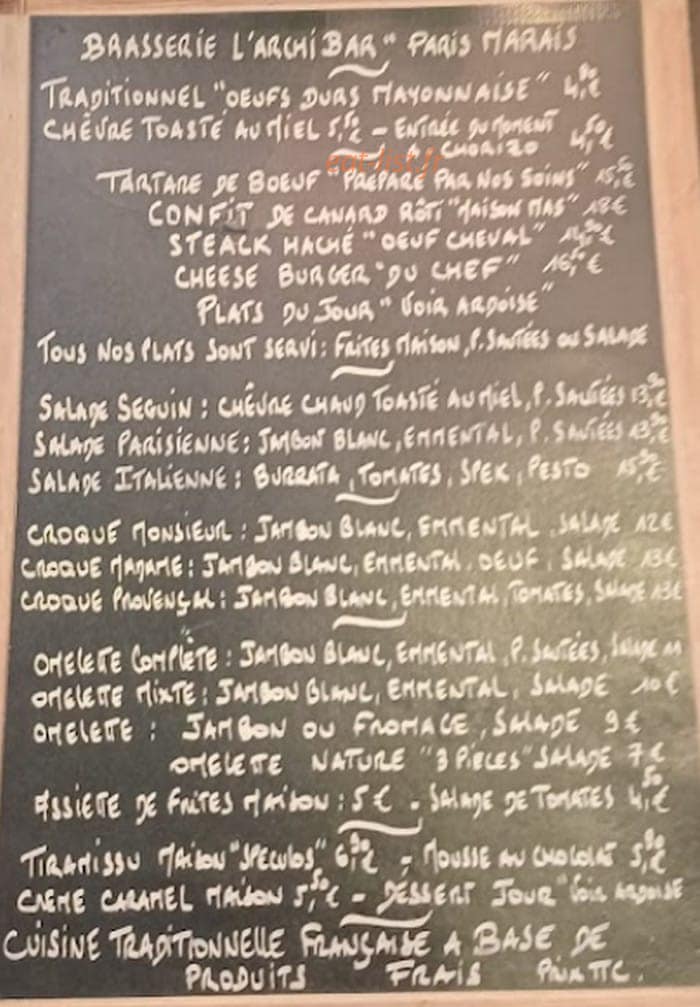 BRASSERIE L'ARCHIBAR" PARIS MARAIS
TRADITIONNEL "OEUFS DURS MAYONNAISE" 4,90€
CHÈVRE TOASTÉ AU MIEL 5,50€ - ENTRÉE DU MOMENT
CHORIZO 4,50€
eat-list.fr
TARTARE DE BOEUF "PRÉPARÉ PAR NOS SOINS" 15,50€
CONFIT DE CANARD RÔTI "MAISON MAS" 18€
STEACK HACHÉ "OEUF CHEVAL" €
CHEESE BURGER "DU CHEF" 16,50€
PLATS DU JOUR "VOIR ARDOISE"
TOUS NOS PLATS SONT SERVI: FRITES MAISON, P. SAUTÉES OU SALADE
SALADE SEGUIN : CHÈVRE CHAUD TOASTÉ AU MIEL, P. SAUTÉES 13,90€
SALADE PARISIENNE: JAMBON BLANC, EMMENTAL, P. SAUTÉES 13,90€
SALADE ITALIENNE: BURRATA, TOMATES, SPEK, PESTO 15,90€
CROQUE MONSIEUR : JAMBON BLANC, EMMENTAL, SALADE 12€
CROQUE MADAME: JAMBON BLANC, EMMENTAL, OEUF, SALADE 13€
CROQUE PROVENÇAL: JAMBON BLANC, EMMENTAL, TOMATES, SALADE 13€
OMELETTE COMPLÈTE : JAMBON BLANC, EMMENTAL, P. SAUTÉES, SALADE 11
OMELETTE MIXTE: JAMBON BLANC, EMMENTAL, SALADE 10€
OMELETTE : JAMBON OU FROMAGE, SALADE 9€
OMELETTE NATURE "3 PIECES" SALADE 7€
ASSIETTE DE FRITES MAISON : 5€ - SALADE DE TOMATES 4,50€
TIRAMISSU MAISON "SPECULOS" 6,90€ - MOUSSE AU CHOCOLAT 5,90€
CRÈME CARAMEL MAISON 5,50€ - DESSERT JOUR "VOIR ARDOISE
CUISINE TRADITIONNELLE FRANÇAISE A BASE DE
PRODUITS FRAIS PRIX TTC.